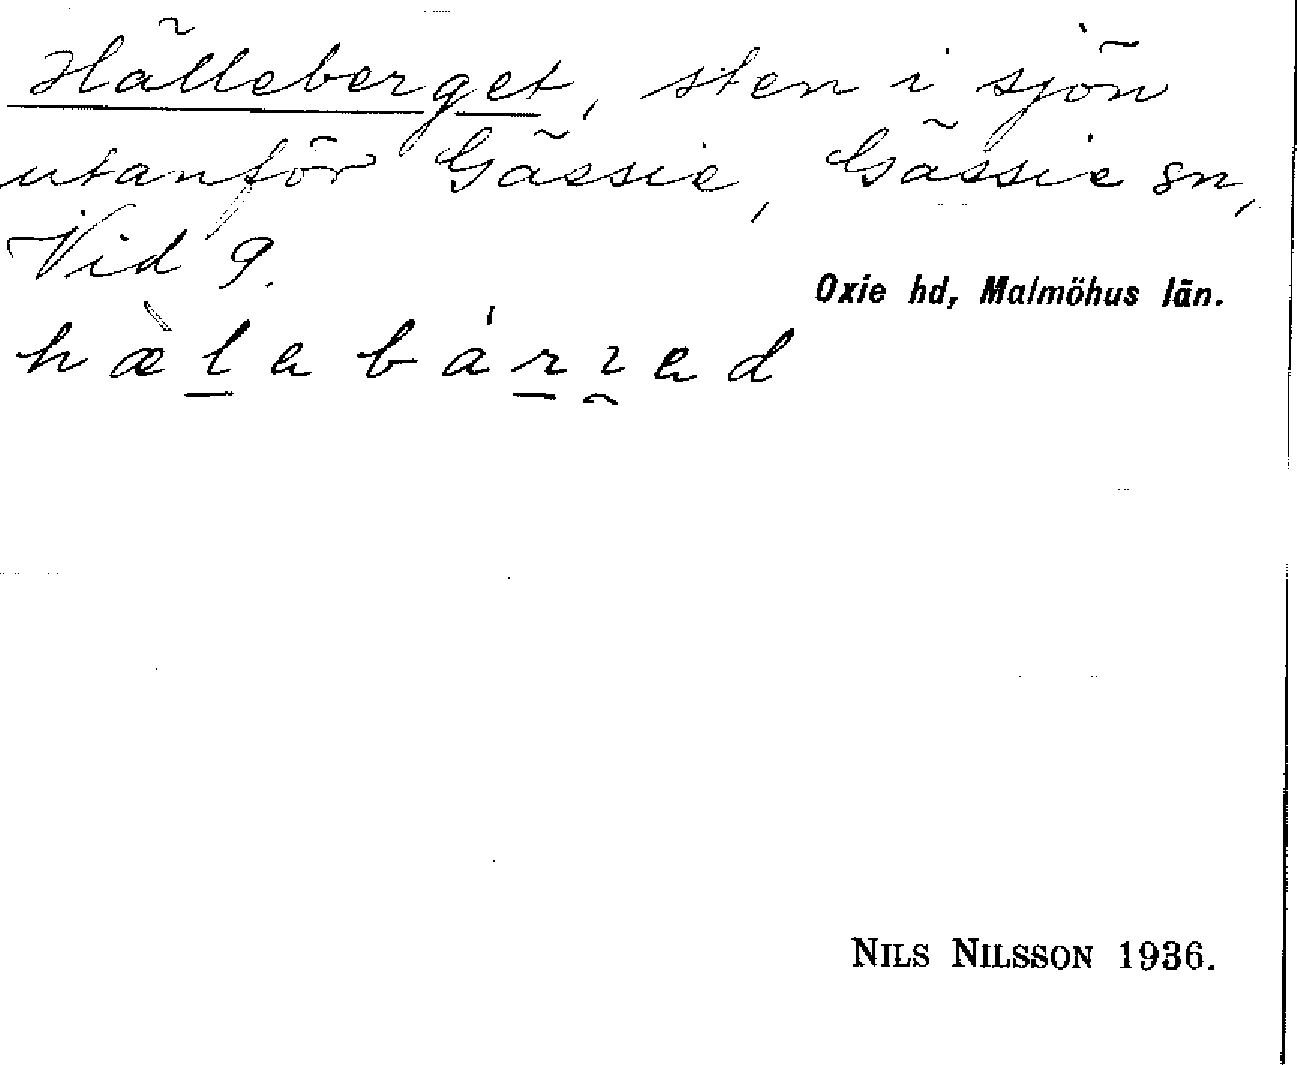 Hälleberget, sten i sjön
utanför Gässie, Gässie sn,
Vid 9.
Oxie hd, Malmöhus län.
NILS NILSSON 1936.